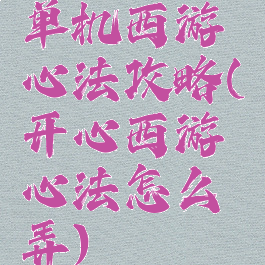 单机西游
心法攻略(
开心西游
心法怎么
弄)